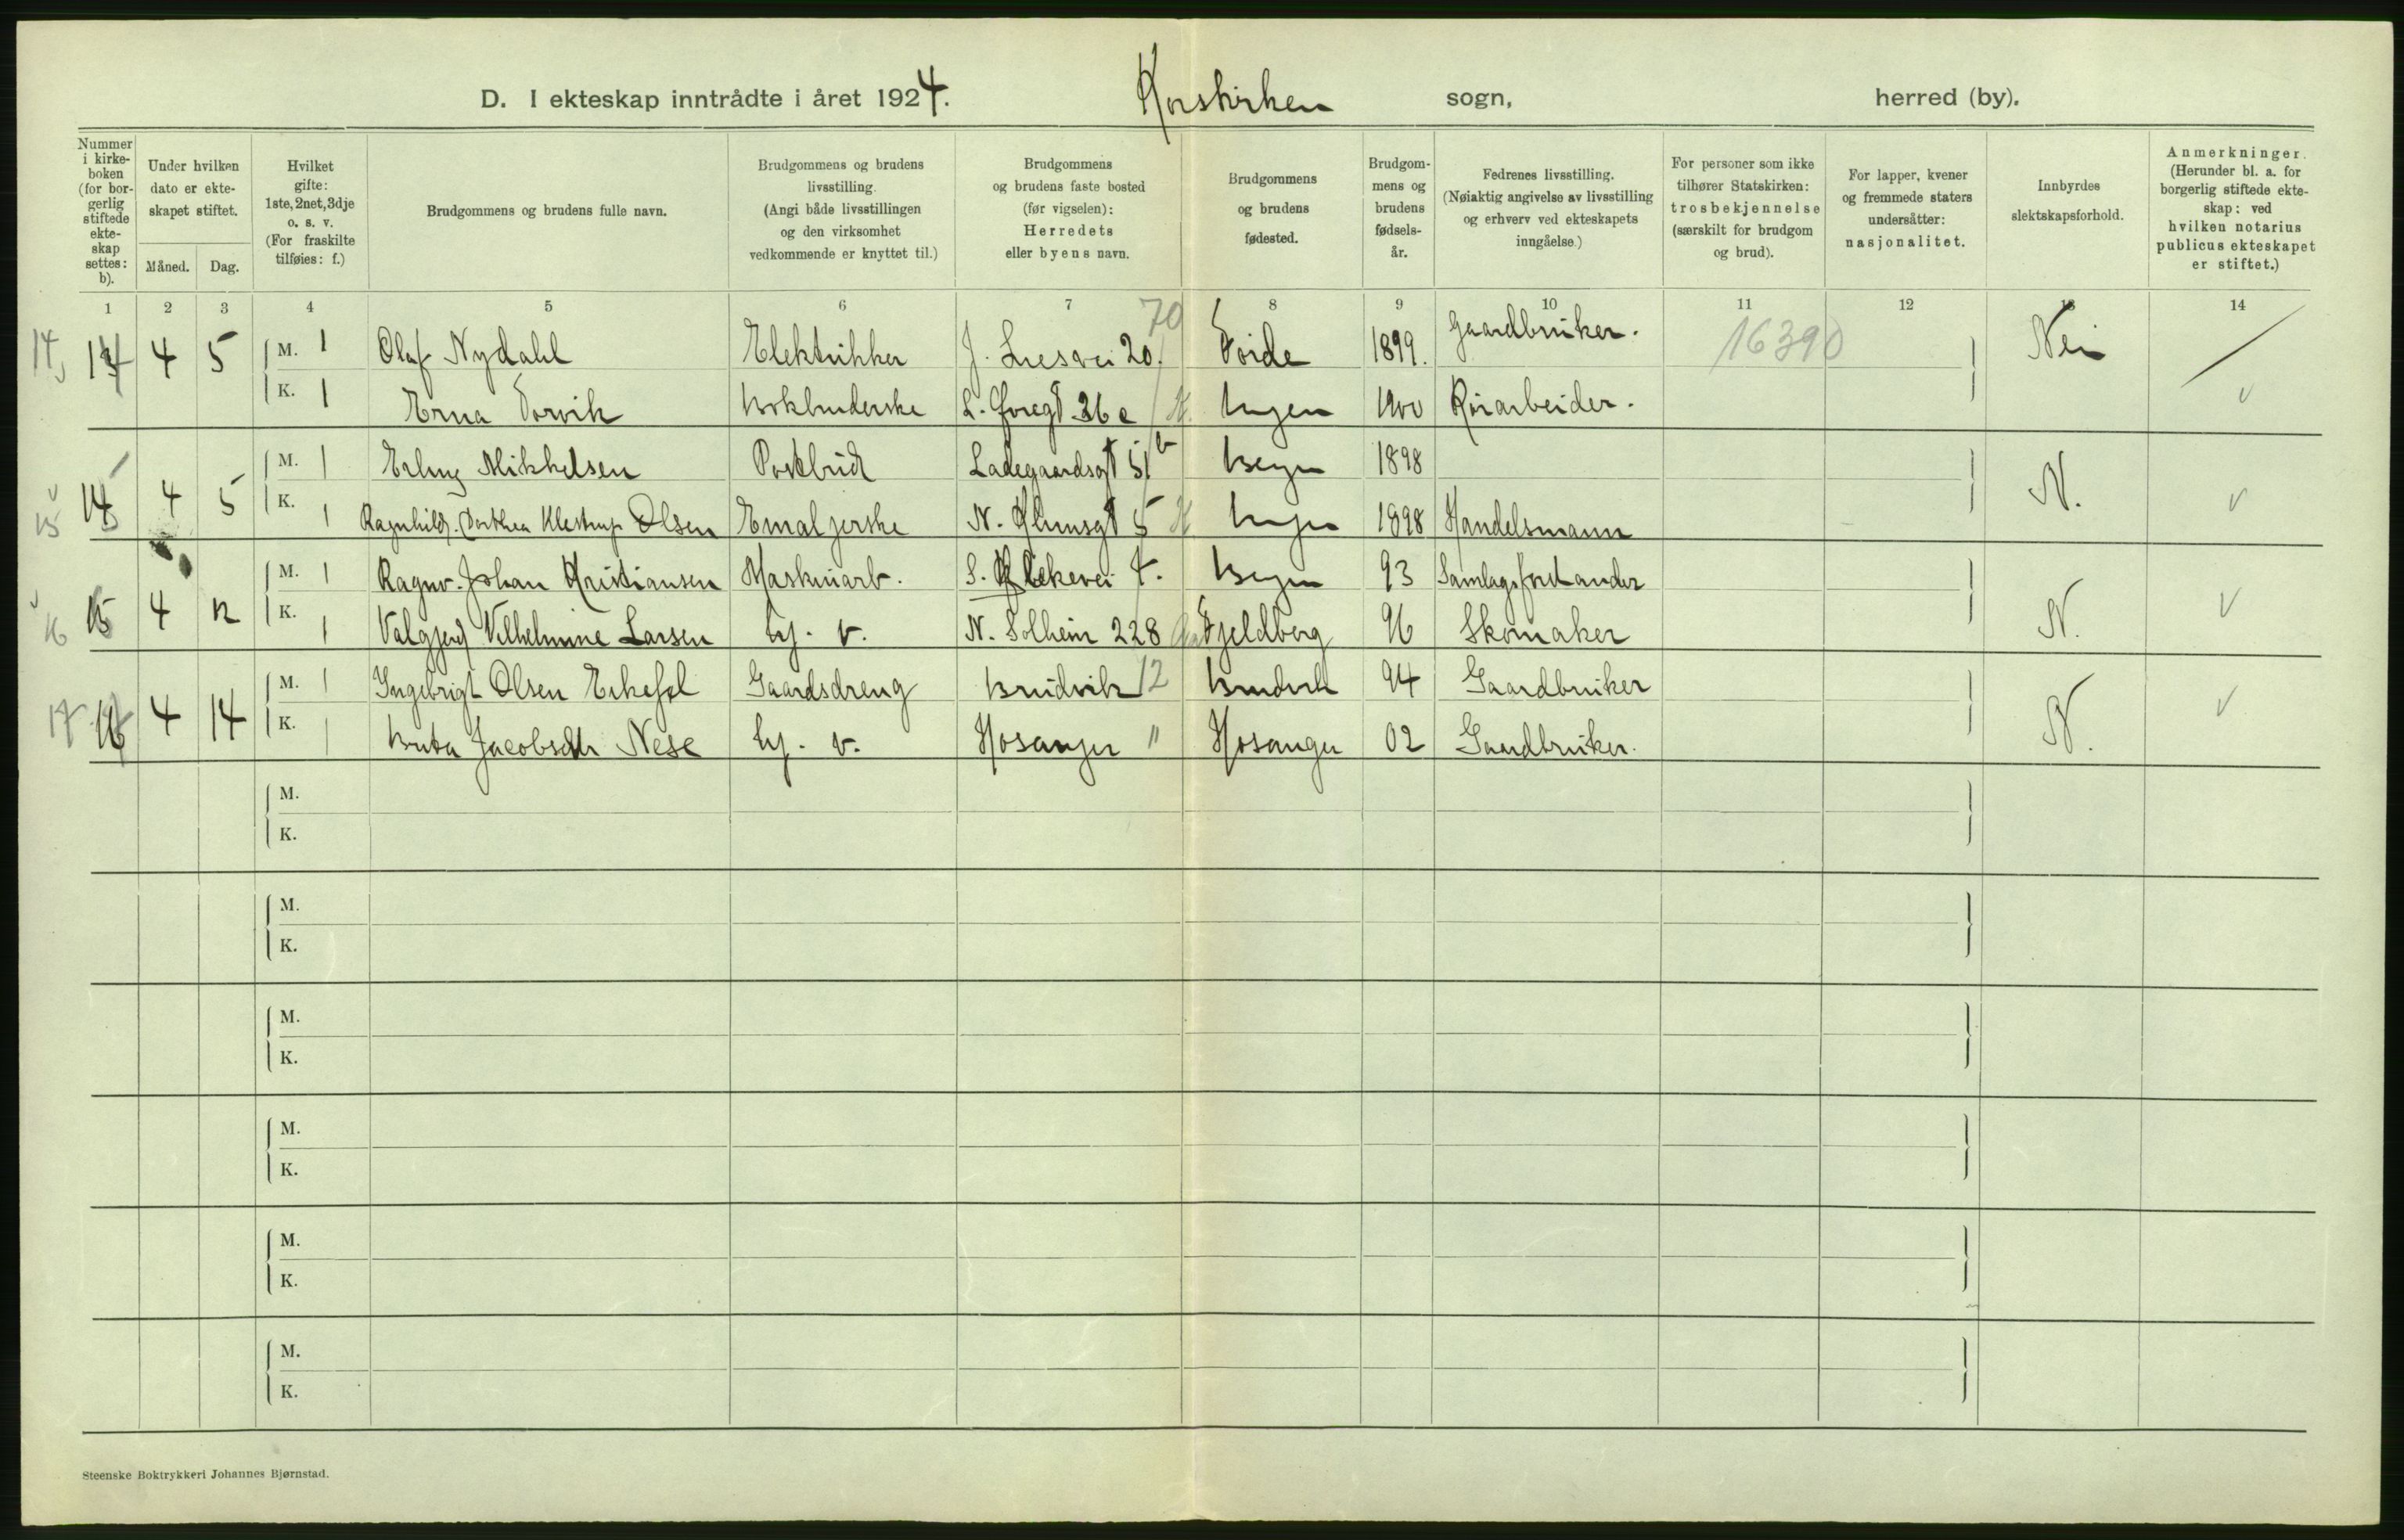 D. I ekteskap inntrådte i året 1924. Korskirken sogn, herred (by).
Nummer i kirke- boken (for bor- gerlig stiftede ekte- skap settes: b).
Under hvilken dato er ekte- skapet stiftet.
Måned. Dag.
Hvilket gifte: 1ste, 2net, 3dje o. s. v. (For fraskilte tilføies: f.)
Brudgommens og brudens fulle navn.
Brudgommens og brudens livsstilling. (Angi både livsstillingen og den virksomhet vedkommende er knyttet til.)
Brudgommens og brudens faste bosted (før vigselen): Herredets eller byens navn.
Brudgommens og brudens fødested.
Brudgom- mens og brudens fødsels- år.
Fedrenes livsstilling. (Nøiaktig angivelse av livsstilling og erhverv ved ekteskapets inngåelse.)
For personer som ikke tilhører Statskirken: trosbekjennelse (særskilt for brudgom og brud).
For lapper, kvener og fremmede staters undersåtter: nasjonalitet.
Innbyrdes slektskapsforhold.
Anmerkninger. (Herunder bl. a. for borgerlig stiftede ekte- skap: ved hvilken notarius publicus ekteskapet er stiftet.)
1 2 3 4 5 6 7 8 9 10 11 12 13 14
70
14 4 5 M. 1 Olaf Nydahl Elektrikker 20. 1899. Gaardbruker. 16390 Nei
K. 1 Erna Torvik Bokbinderske 36 c Bergen 1900 Rörarbeider.
M. 1 Erling Mikkelsen Postbud Ladegaardsgt 51 b Bergen 1898
15 15 4 5 K. 1 Ragnhild Dorthea Olsen Emaljerske 5 Bergen 1898 Handelsmann N.
M. 1 Ragnv. Johan Kristiansen Maskinarb. Bergen 93 Samlagsforstander
16 4 12 K. 1 Valgjerd Vilhelmine Larsen Hj. v. N. Solheim 228 Fjeldberg 96 Skomaker N.
M. 1 Ingebrigt Olsen Gaardsdreng Bruvik 12 Bruvik 94 Gaardbruker
17 4 14 K. 1 Jacobsdtr Nese Hj. v. Hosanger " Hosanger 02 Gaardbruker. N.
M.
K.
M.
K.
M.
K.
M.
K.
M.
K.
M.
K.
Steenske Boktrykkeri Johannes Bjørnstad.